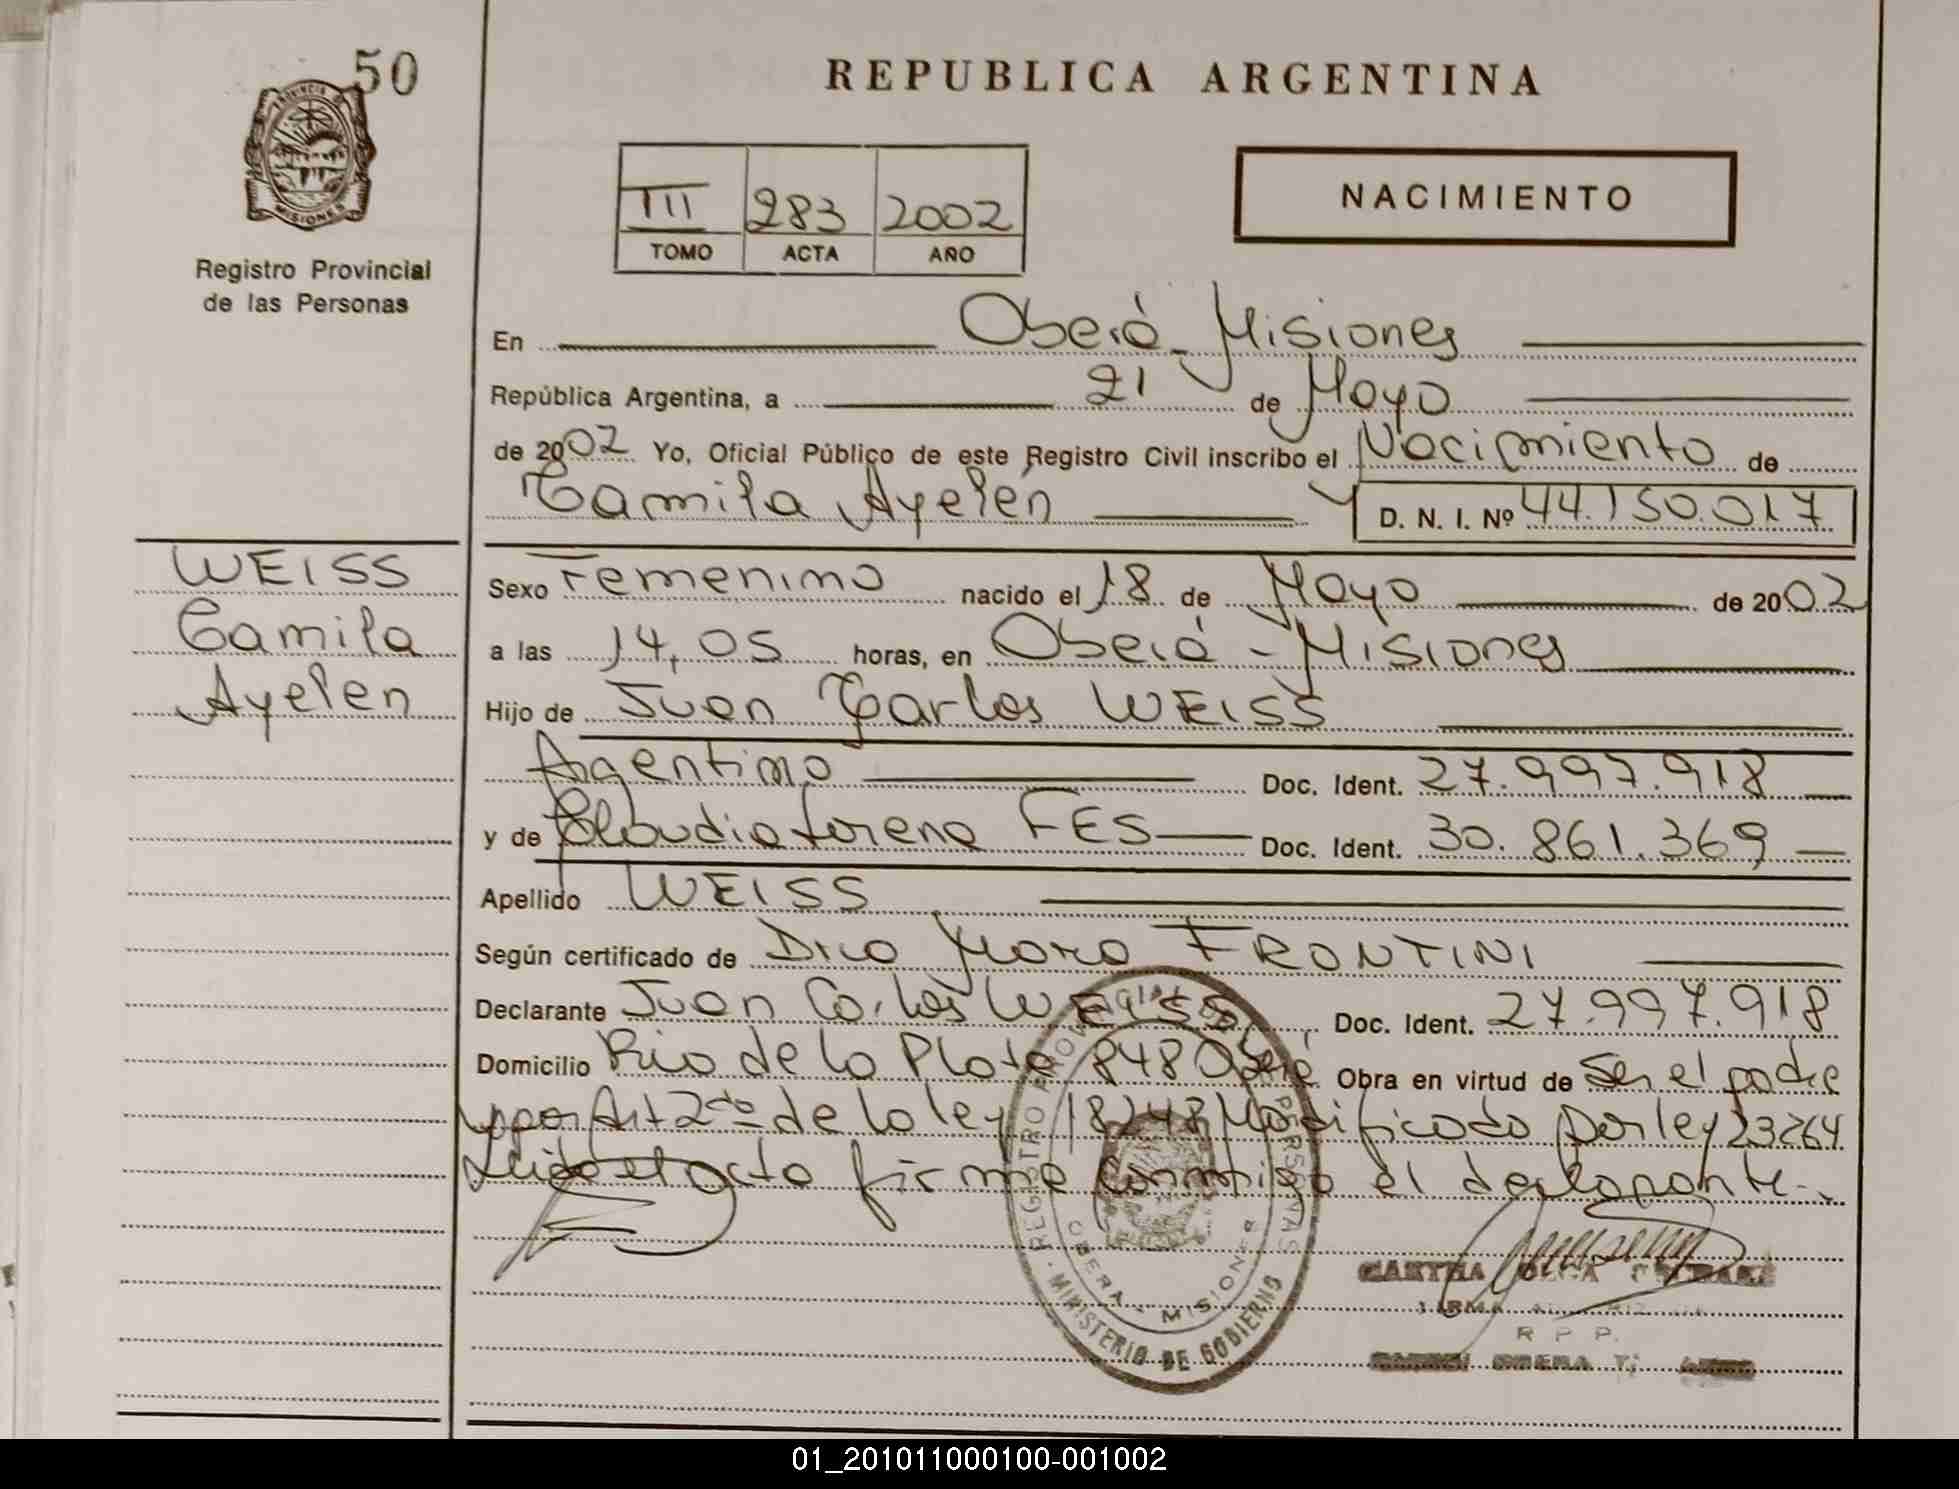 50
PROVINCIA
MISIONES
Registro Provincial
de las Personas
REPUBLICA ARGENTINA
III 283 2002
TOMO ACTA AÑO
NACIMIENTO
En Oberá - Misiones
República Argentina, a 21 de Mayo
de 2002 Yo, Oficial Público de este Registro Civil inscribo el Nacimiento de
Camila Ayelén D. N. I. Nº 44.150.017
WEISS
Camila
Ayelen
Sexo Femenino nacido el 18 de Mayo de 2002
a las 14,05 horas, en Oberá - Misiones
Hijo de Juan Carlos WEISS
Argentino Doc. Ident. 27.997.918
y de Claudia Lorena FES Doc. Ident. 30.861.369
Apellido WEISS
Según certificado de Dra Mara FRONTINI
Declarante Juan Carlos WEISS Doc. Ident. 27.997.918
Domicilio Rio de la Plata 848 Oberá Obra en virtud de Ser el padre
y por Art 2do de la ley 18248 Modificado por ley 23264
Leida el acta firma conmigo el declarante.
REGISTRO PERSONAS
OBERA - MISIONES
MINISTERIO DE GOBIERNO
R P P.
01_201011000100-001002